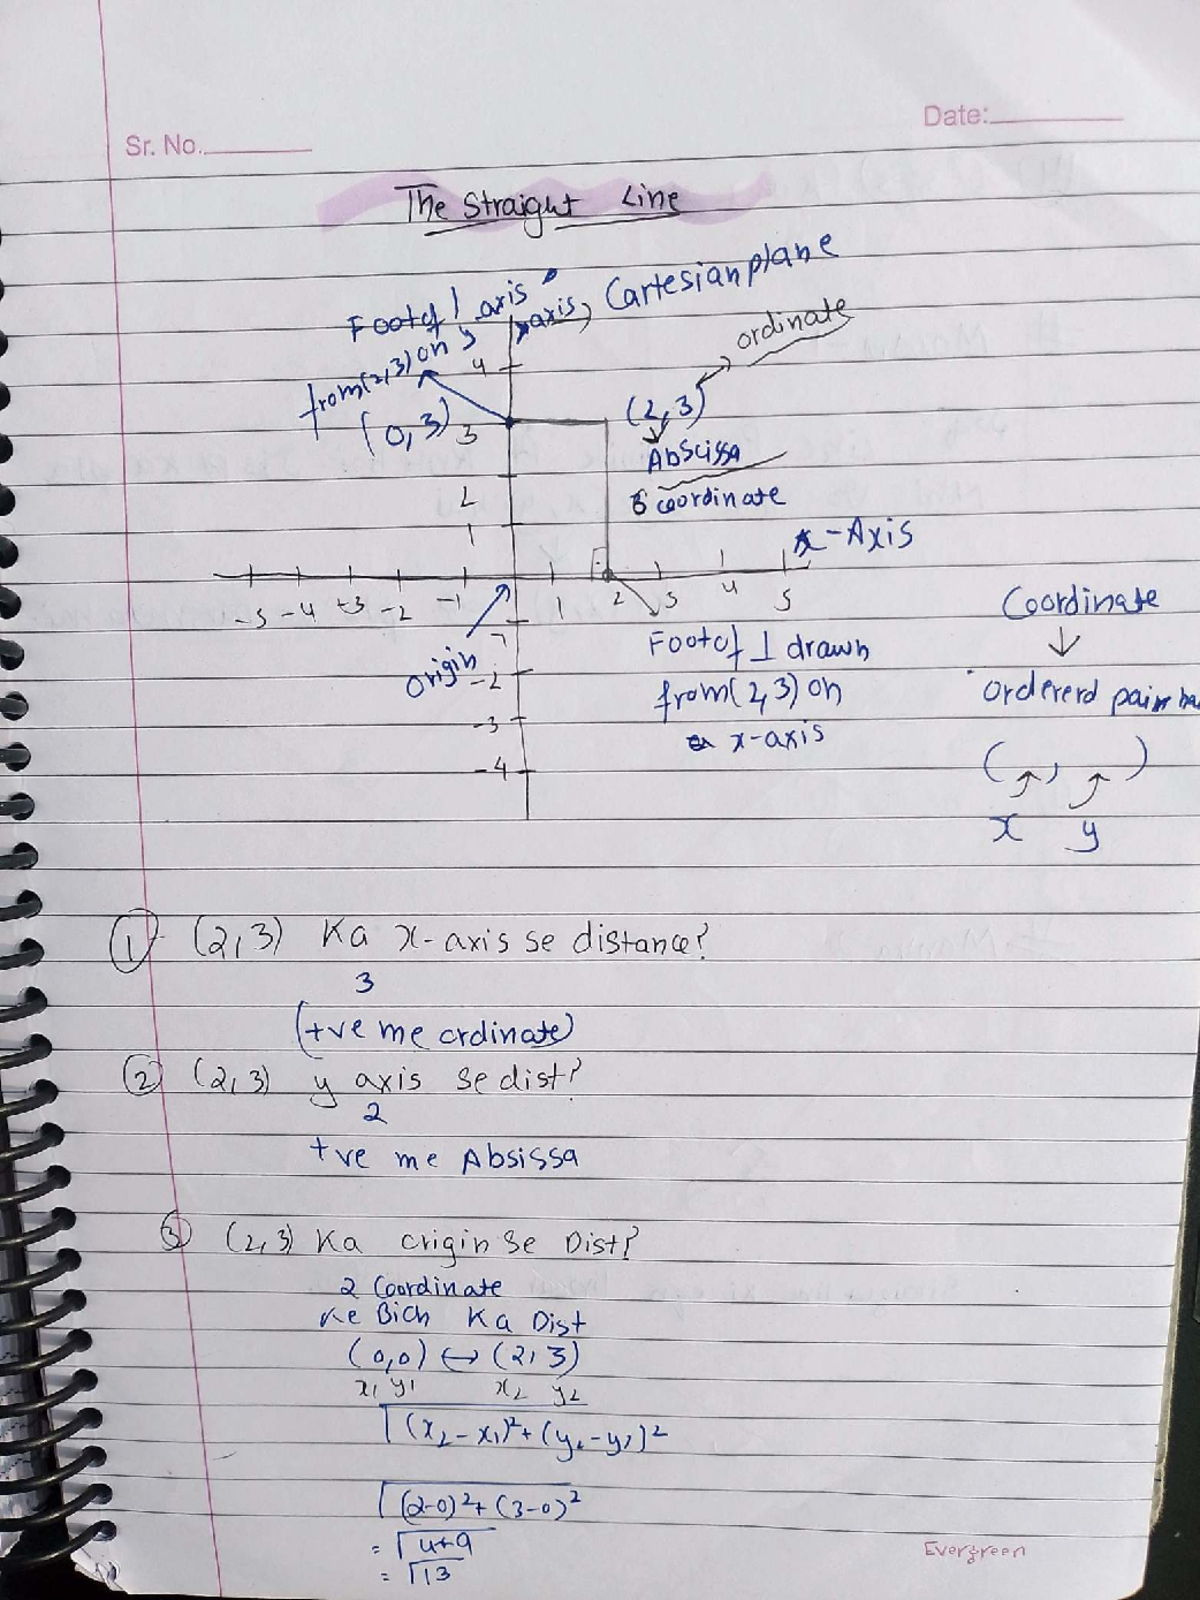 Date:
Sr. No.
The Straight Line
Cartesian plane
Foot of ⊥ axis
axis,
from (2,3) on y
ordinate
4
(0,3)
3
(2,3)
Abscissa
coordinate
2
1
x-Axis
-5 -4 +3 -2 -1 1 2 3 4 5
-1
Origin
-2
-3
-4
Foot of ⊥ drawn
from (2,3) on
x-axis
Coordinate
↓
Ordererd pair
( , )
x y
① (2,3) Ka x-axis se distance?
3
(+ve me ordinate)
② (2,3) y axis se dist?
2
+ve me Absissa
③ (2,3) Ka origin se Dist?
2 Coordinate
Ke Bich Ka Dist
(0,0) ↔ (2,3)
x₁ y₁ x₂ y₂
√(x₂-x₁)²+(y₂-y₁)²
√(2-0)²+(3-0)²
= √4+9
= √13
Evergreen